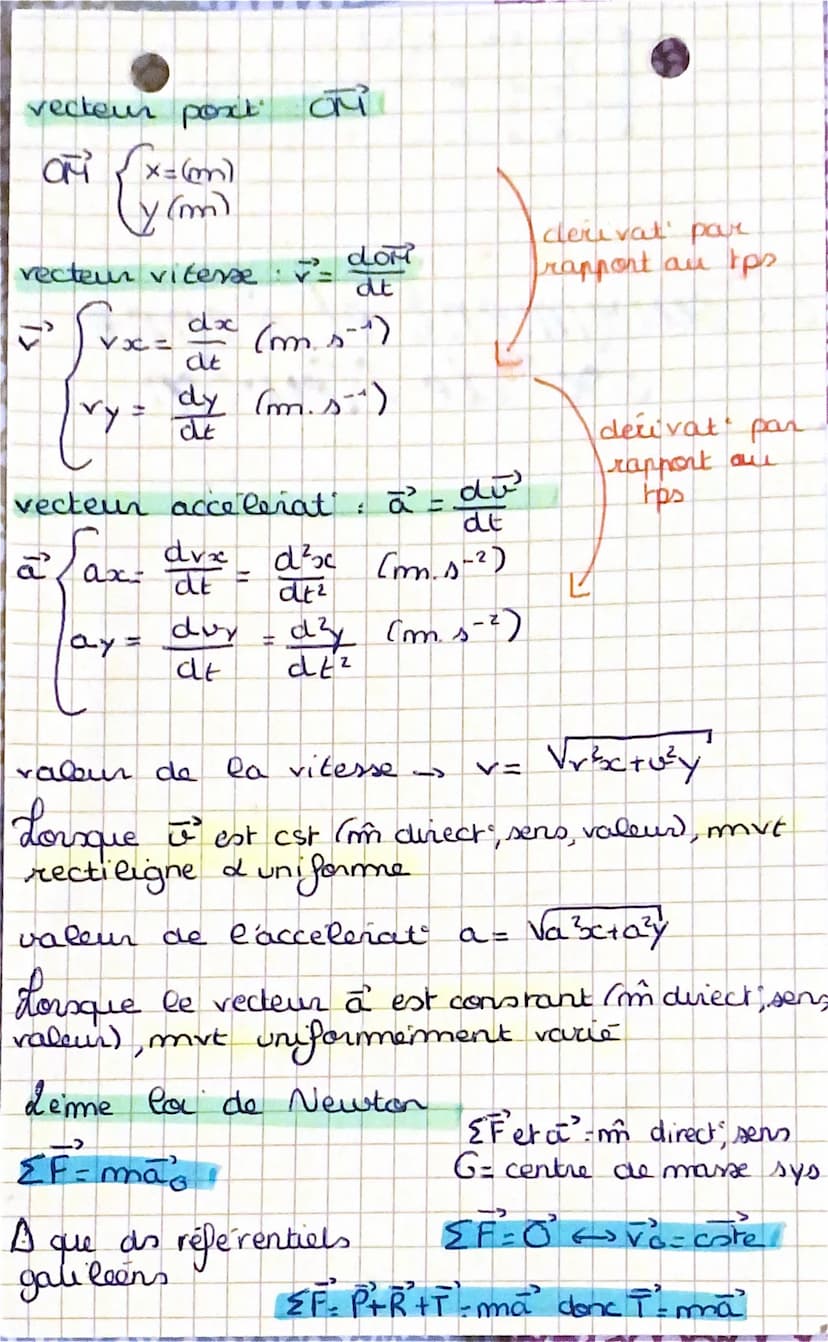 vecteur posit° OM⃗
OM⃗ { x=(m)
y (m)
derivat° par
rapport au tps
vecteur vitesse : v⃗ = dOM⃗/dt
v⃗ { vx = dx/dt (m.s⁻¹)
vy = dy/dt (m.s⁻¹)
derivat° par
rapport au
tps
vecteur accélérat° : a⃗ = dv⃗/dt
a⃗ { ax = dvx/dt = d²x/dt² (m.s⁻²)
ay = dvy/dt = d²y/dt² (m.s⁻²)
valeur de la vitesse → v = √v²x+v²y
Lorsque v⃗ est cst (m̂ direct°, sens, valeur), mvt
rectiligne & uniforme
valeur de l'accelerat° a = √a²x+a²y
Lorsque le vecteur a⃗ est constant (m̂ direct°, sens,
valeur), mvt uniformement varié
2eme loi de Newton
ΣF⃗ et a⃗ = m̂ direct°, sens
ΣF⃗ = ma⃗G
G = centre de masse sys
⚠ que ds référentiels
galiléens
ΣF⃗ = 0⃗ ↔ v⃗G = cste⃗
ΣF⃗ = P⃗+R⃗+T⃗ = ma⃗ donc T⃗ = ma⃗